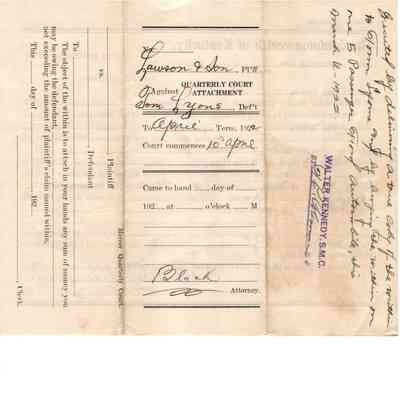 Lawson & Son, Pl'ff
Against QUARTERLY COURT ATTACHMENT
Tom Lyons Def't
To April Term, 192
Court commences 10 April
Came to hand day of
192 at o'clock M
Black
Attorney.
Executed by delivering a true copy of the within
to Tom Lyons and by levying the within on
one 5 Passenger Ford Automobile, this
March 11-1922
WALTER KENNEDY, S.M.C.
Plaintiff
vs.
Defendant
To
The object of the within is to attach in your hands any sum of money you
may be owing the defendant,
not exceeding the amount of plaintiff's claim named within.
This day of 192
Clerk.
Quarterly Court.